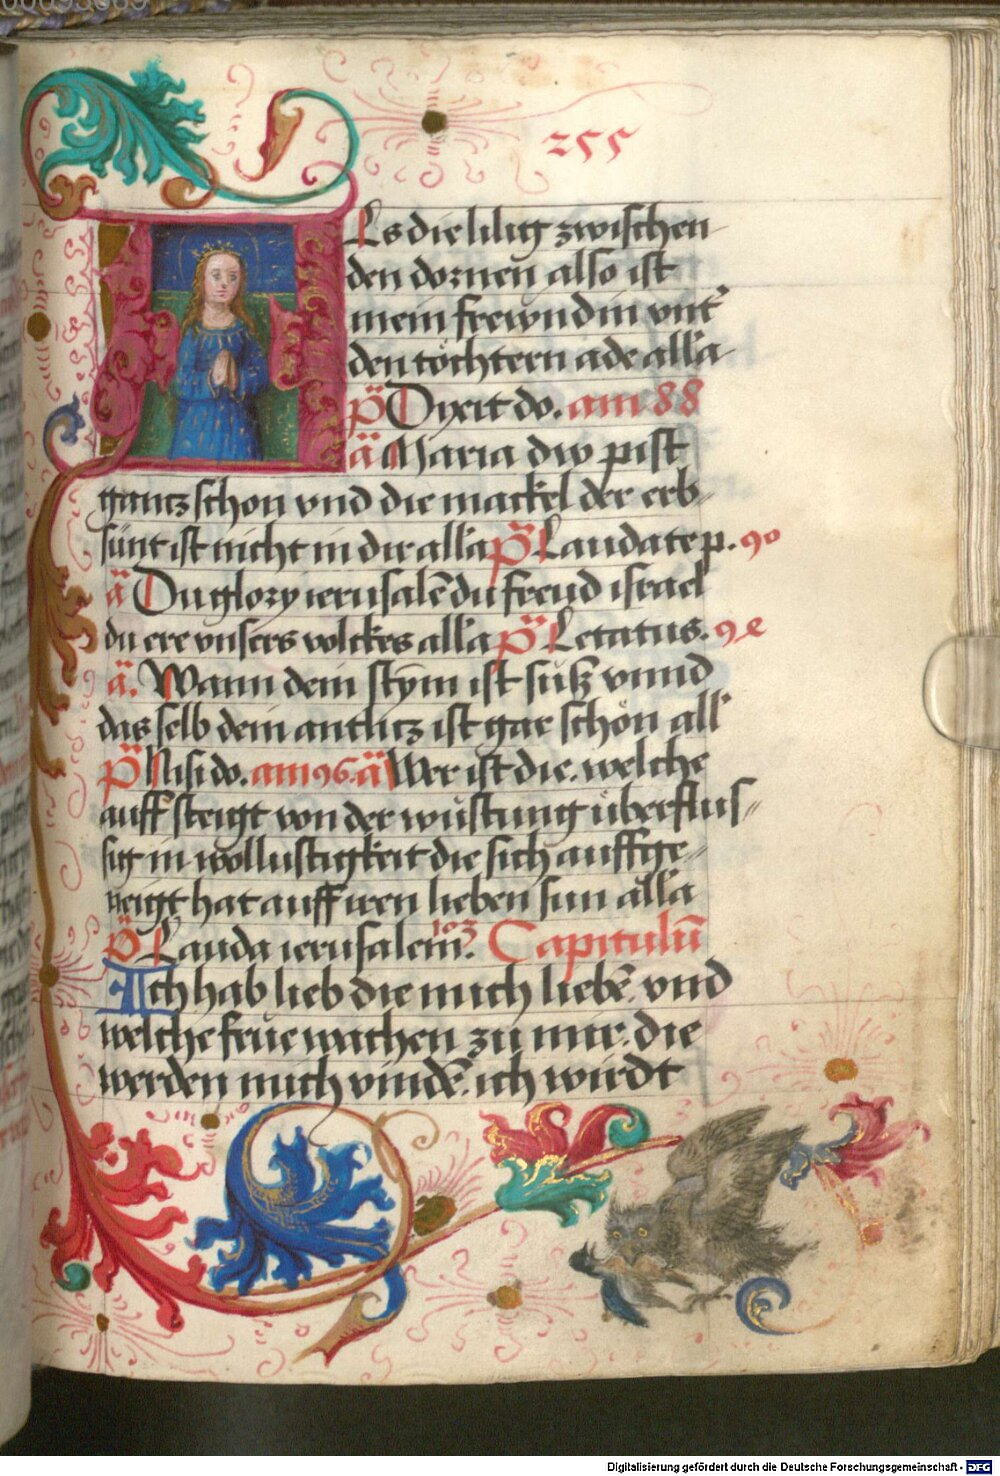 255
Als die lilig zwischen
den dornen also ist
mein frewndin vnt̉
den töchtern ade alla
p̄s Dixit do. am 88
ā Maria dw pist
gantz schon vnd die mackel der erb-
sünt ist nicht in dir alla p̄s Laudate p. 90
ā Du glory ierusalē du frewd israel
du ere vnsers volckes alla p̄s Letatus. 92
ā. Wann dein stym ist süsz vnnd
das selb dein antlicz ist gar schön all
p̄s Nisi do. am 96. ā Wer ist die. welche
auff steigt von der wüstung überflus-
sig in wollustigkeit die sich auff ge-
neigt hat auff iren lieben sun alla
p̄s Lauda ierusalem. 103 Capitulū
Ich hab lieb die mich liebē. vnd
welche frue wachen zu mir. die
werden mich vindē. ich wirdt
Digitalisierung gefördert durch die Deutsche Forschungsgemeinschaft - DFG